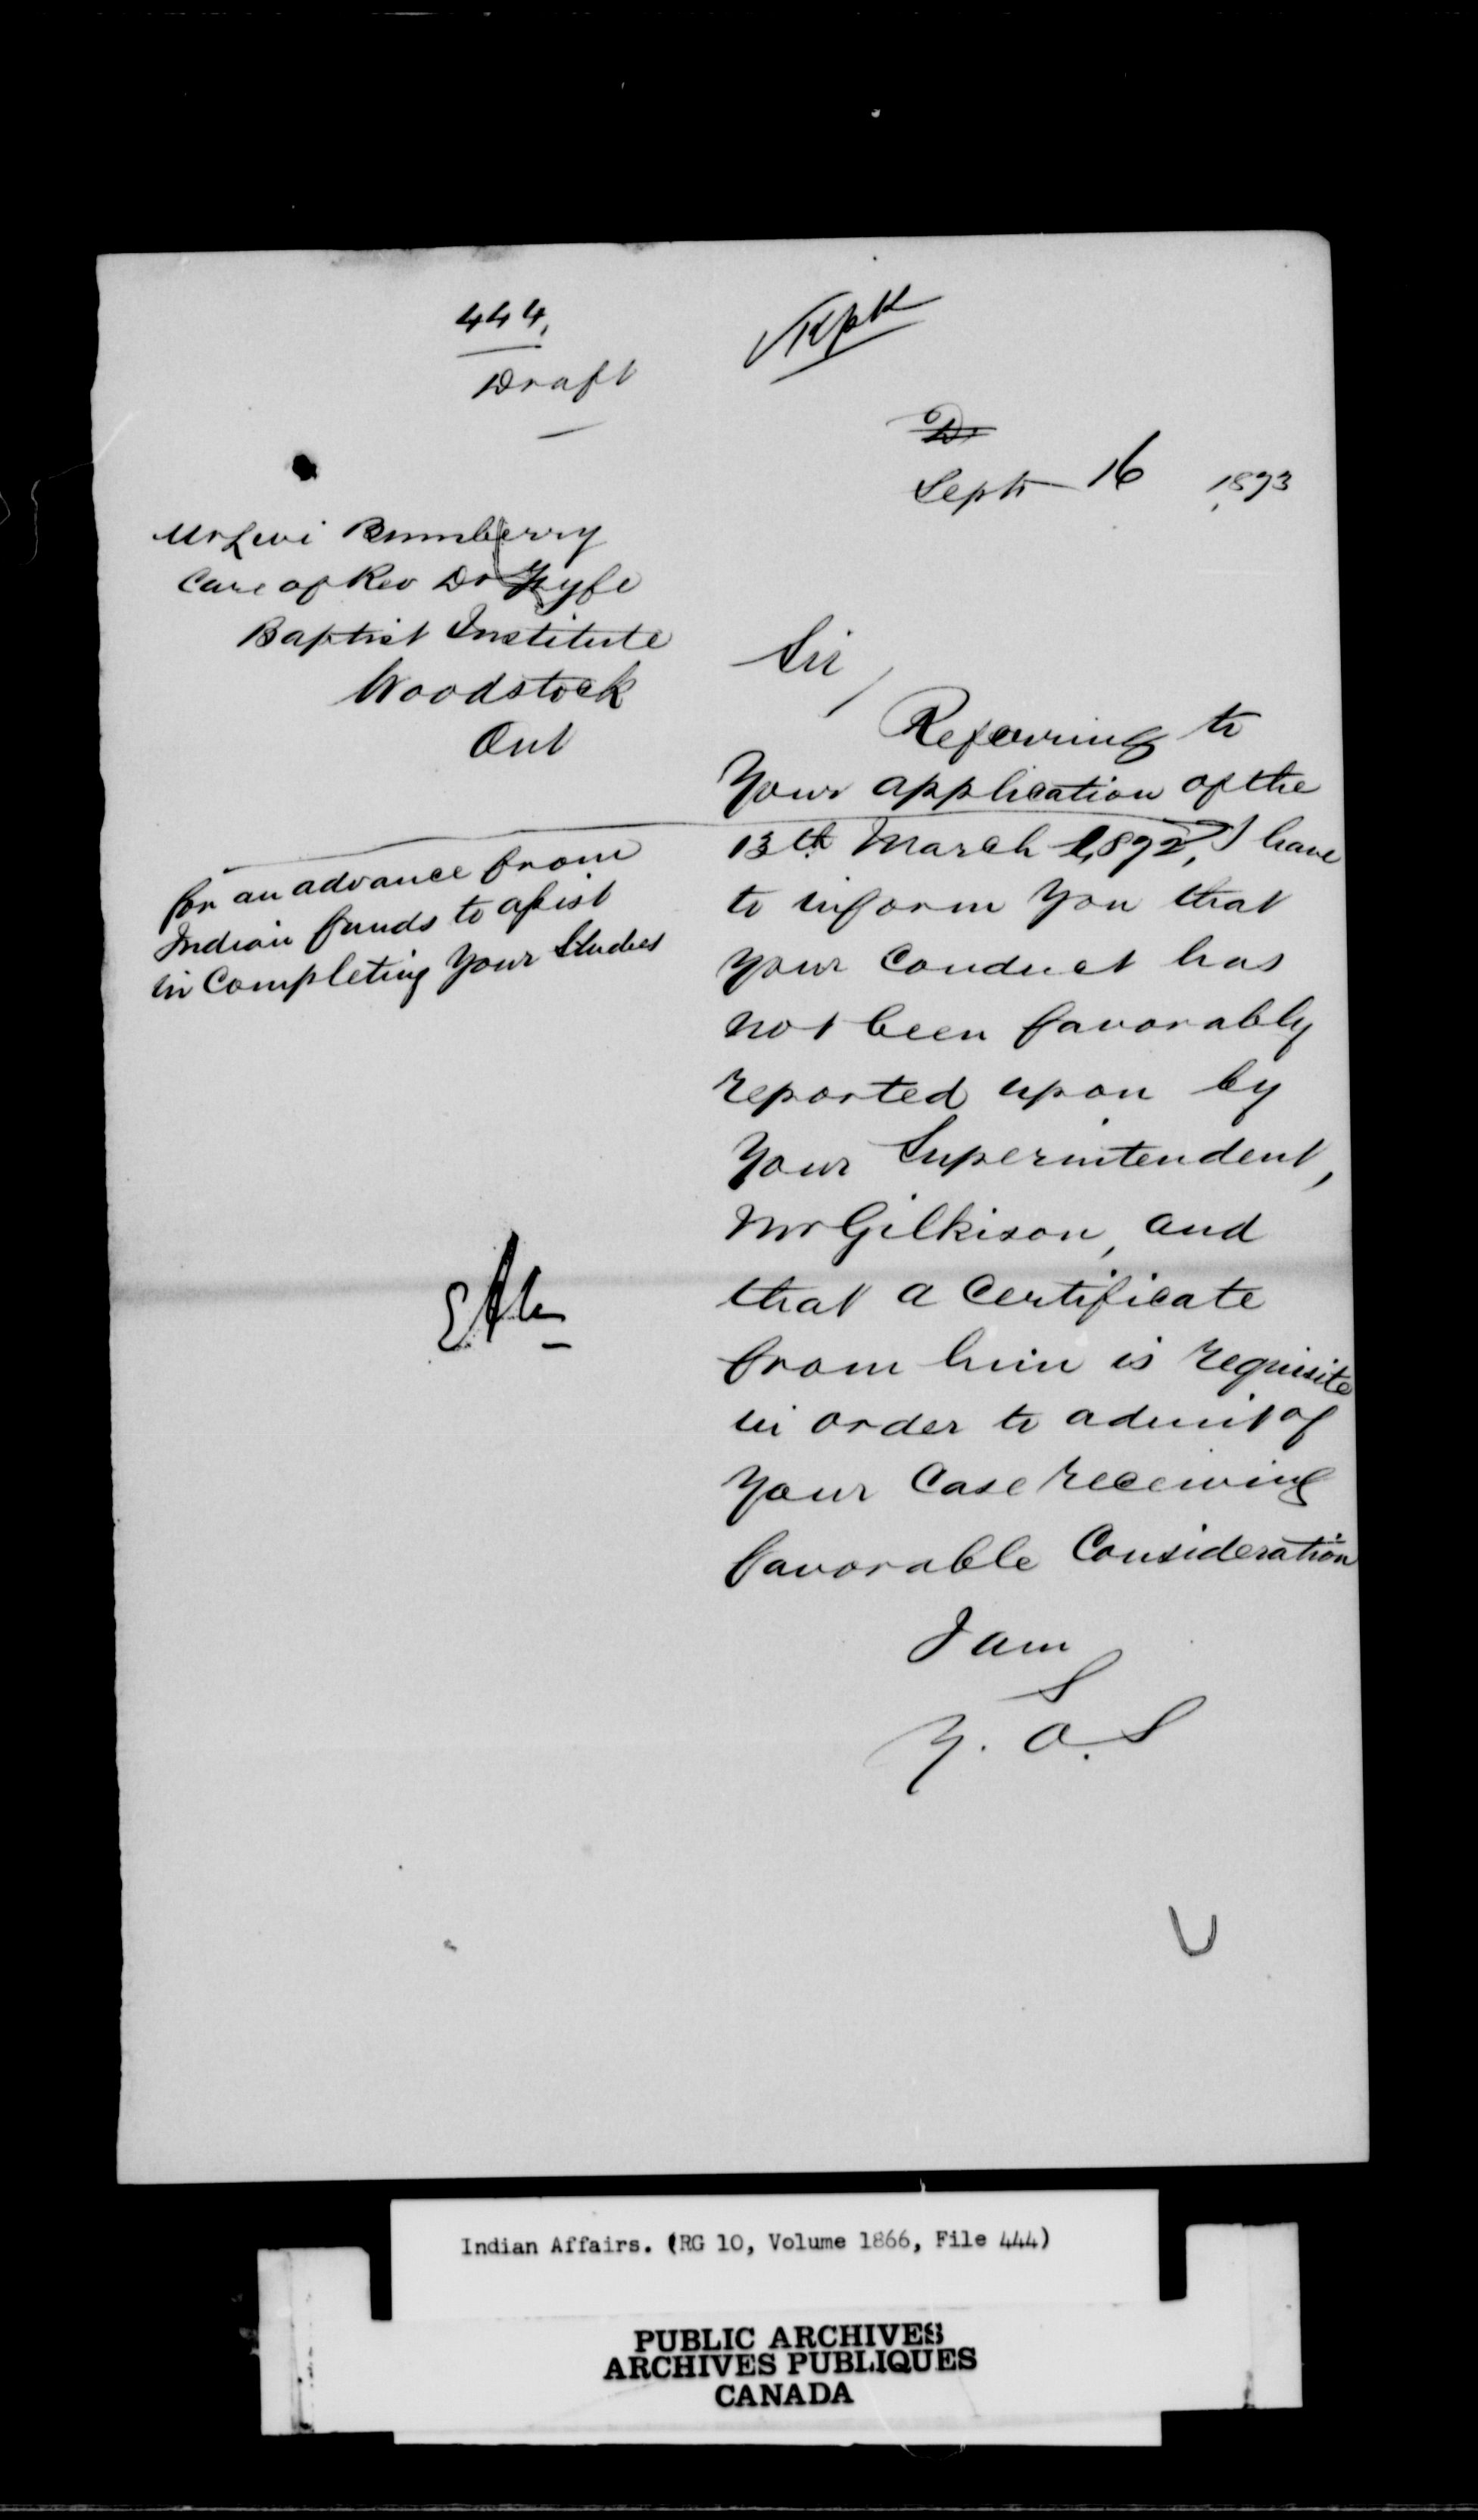 444.
Draft
Sept 16 1873
Mr Levi Bumberry
Care of Rev Dr Fyfe
Baptist Institute
Woodstock
Ont
Sir,
Referring to
your application of the
13th March 1872, I have
for an advance from
Indian funds to assist
in Completing your Studies
to inform you that
your Conduct has
not been favorably
reported upon by
your Superintendent,
Mr Gilkison, and
that a Certificate
from him is requisite
in order to admit of
your Case receiving
favorable Consideration
I am
S
Y. O. S
Indian Affairs. (RG 10, Volume 1866, File 444)
PUBLIC ARCHIVES
ARCHIVES PUBLIQUES
CANADA